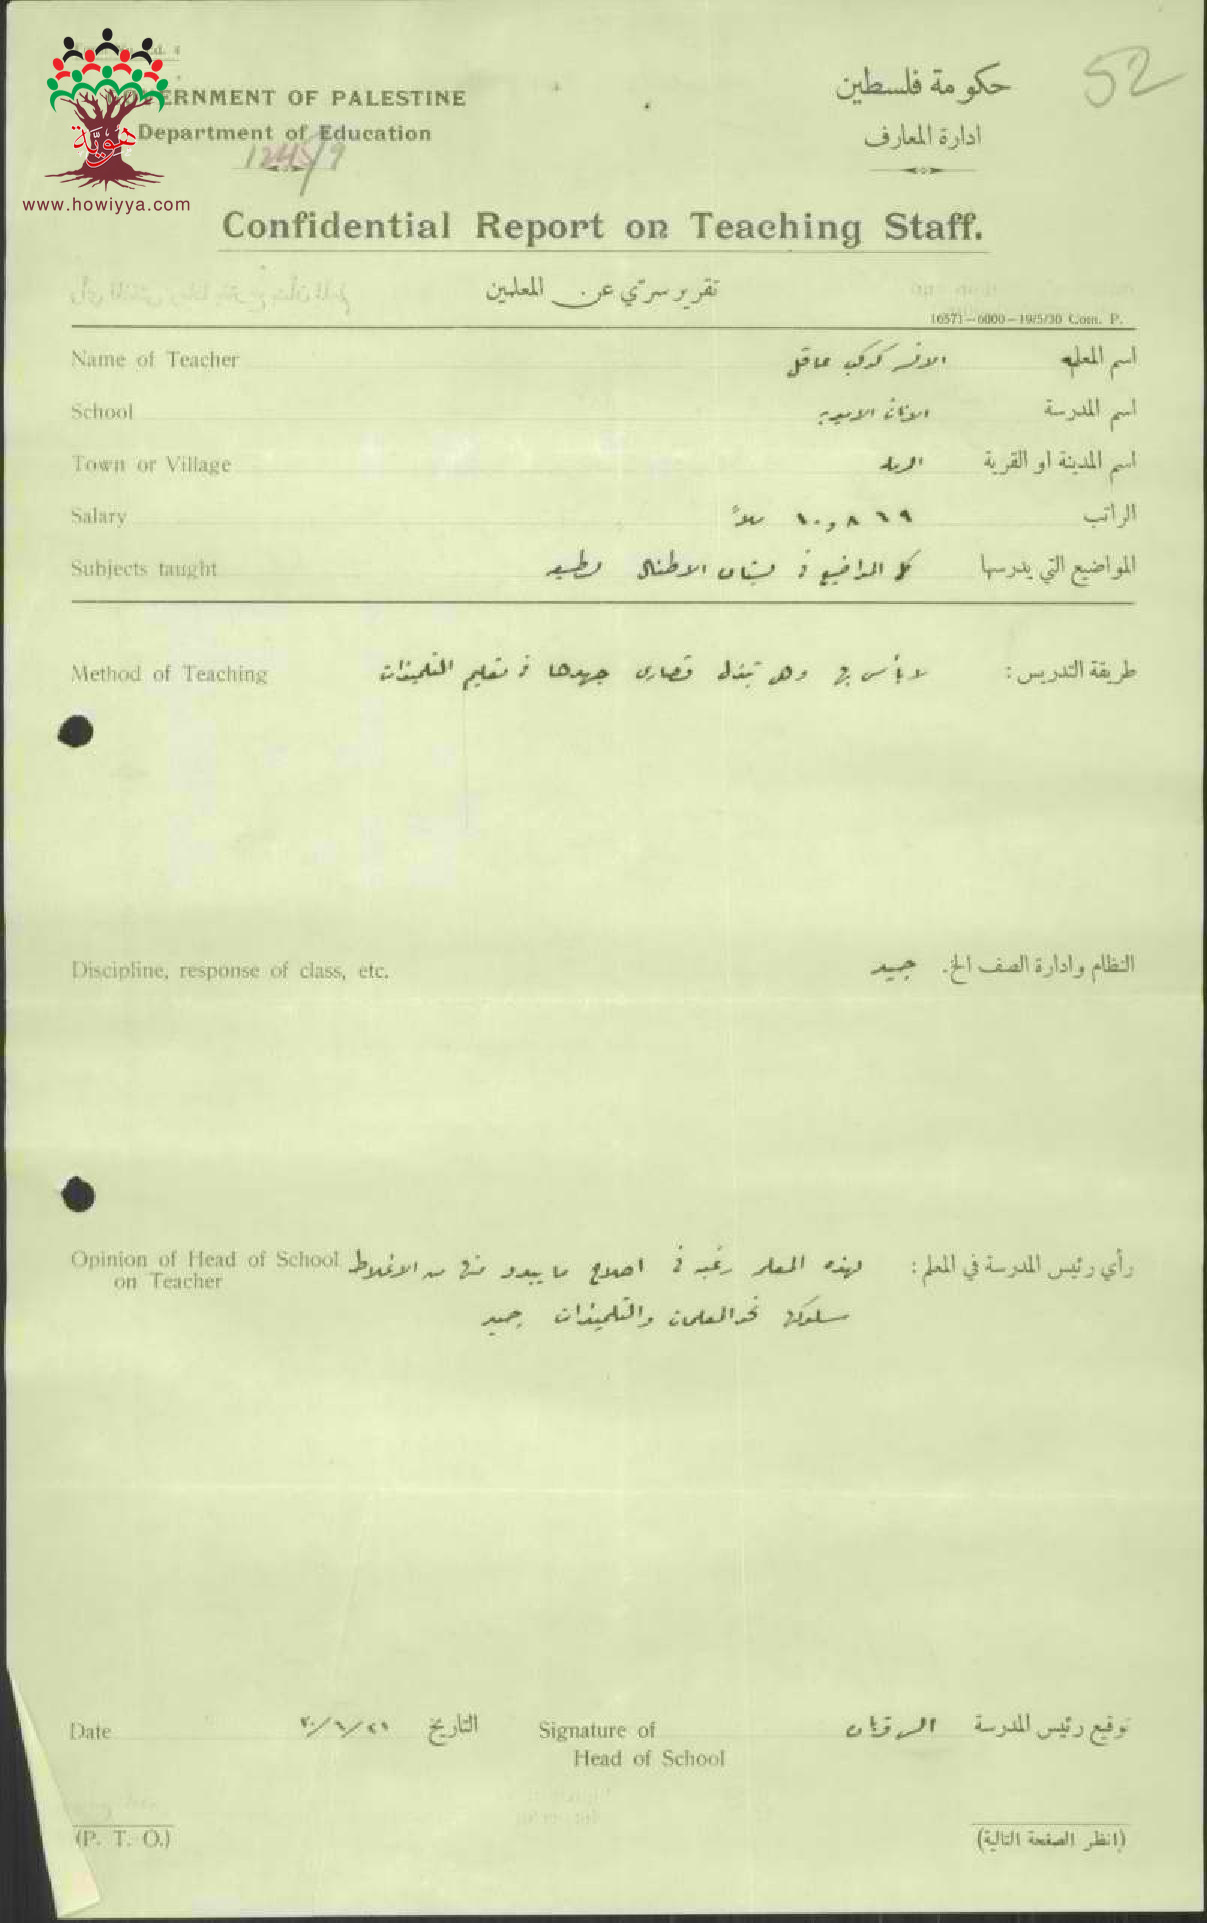 GOVERNMENT OF PALESTINE
Department of Education
1245/9
حكومة فلسطين
ادارة المعارف
52
هوية
www.howiyya.com
Confidential Report on Teaching Staff.
تقرير سري عن المعلمين
16571—6000—19/5/30 Com. P.
Name of Teacher الآنسة كوكب عاقل اسم المعلم
School الاناث الاميرية اسم المدرسة
Town or Village اسم المدينة او القرية
Salary ٨٦٩ و١٠ ملاً الراتب
Subjects taught كل المواضيع في بستان الاطفال المواضيع التي يدرسها
Method of Teaching لا بأس بها وهي تبذل قصارى جهدها في تعليم التلميذات طريقة التدريس :
Discipline, response of class, etc. جيد النظام وادارة الصف الخ.
Opinion of Head of School لهذه المعلمة رغبة في اصلاح ما يبدو منها من الاغلاط رأي رئيس المدرسة في المعلم :
on Teacher
سلوكها نحو المعلمات والتلميذات جيد
Date ٣٠/٦/٢١ التاريخ Signature of توقيع رئيس المدرسة
Head of School
(P. T. O.) (انظر الصفحة التالية)